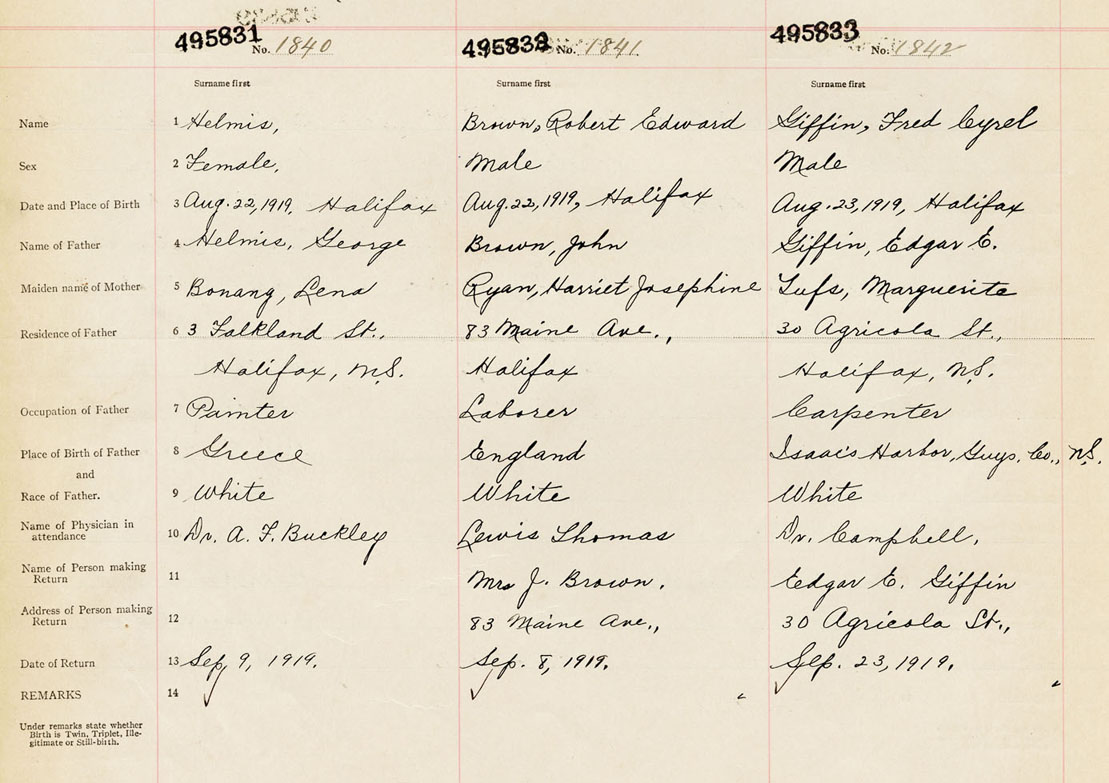 495831 No. 1840 495832 No. 1841 495833 No. 1842
Surname first Surname first Surname first
Name 1 Helmis, Brown, Robert Edward Giffin, Fred Cyrel
Sex 2 Female, Male Male
Date and Place of Birth 3 Aug. 22, 1919, Halifax Aug. 22, 1919, Halifax Aug. 23, 1919, Halifax
Name of Father 4 Helmis, George Brown, John Giffin, Edgar E.
Maiden name of Mother 5 Bonang, Lena Ryan, Harriet Josephine Tufs, Marguerite
Residence of Father 6 3 Falkland St., 83 Maine Ave., 30 Agricola St.,
Halifax, N.S. Halifax Halifax, N.S.
Occupation of Father 7 Painter Laborer Carpenter
Place of Birth of Father 8 Greece England Isaac's Harbor, Guys. Co., N.S.
and
Race of Father. 9 White White White
Name of Physician in
attendance 10 Dr. A. F. Buckley Lewis Thomas Dr. Campbell,
Name of Person making
Return 11 Mrs J. Brown. Edgar E. Giffin
Address of Person making
Return 12 83 Maine Ave., 30 Agricola St.,
Date of Return 13 Sep, 9, 1919. Sep. 8, 1919. Sep. 23, 1919.
REMARKS 14
Under remarks state whether
Birth is Twin, Triplet, Ille-
gitimate or Still-birth.